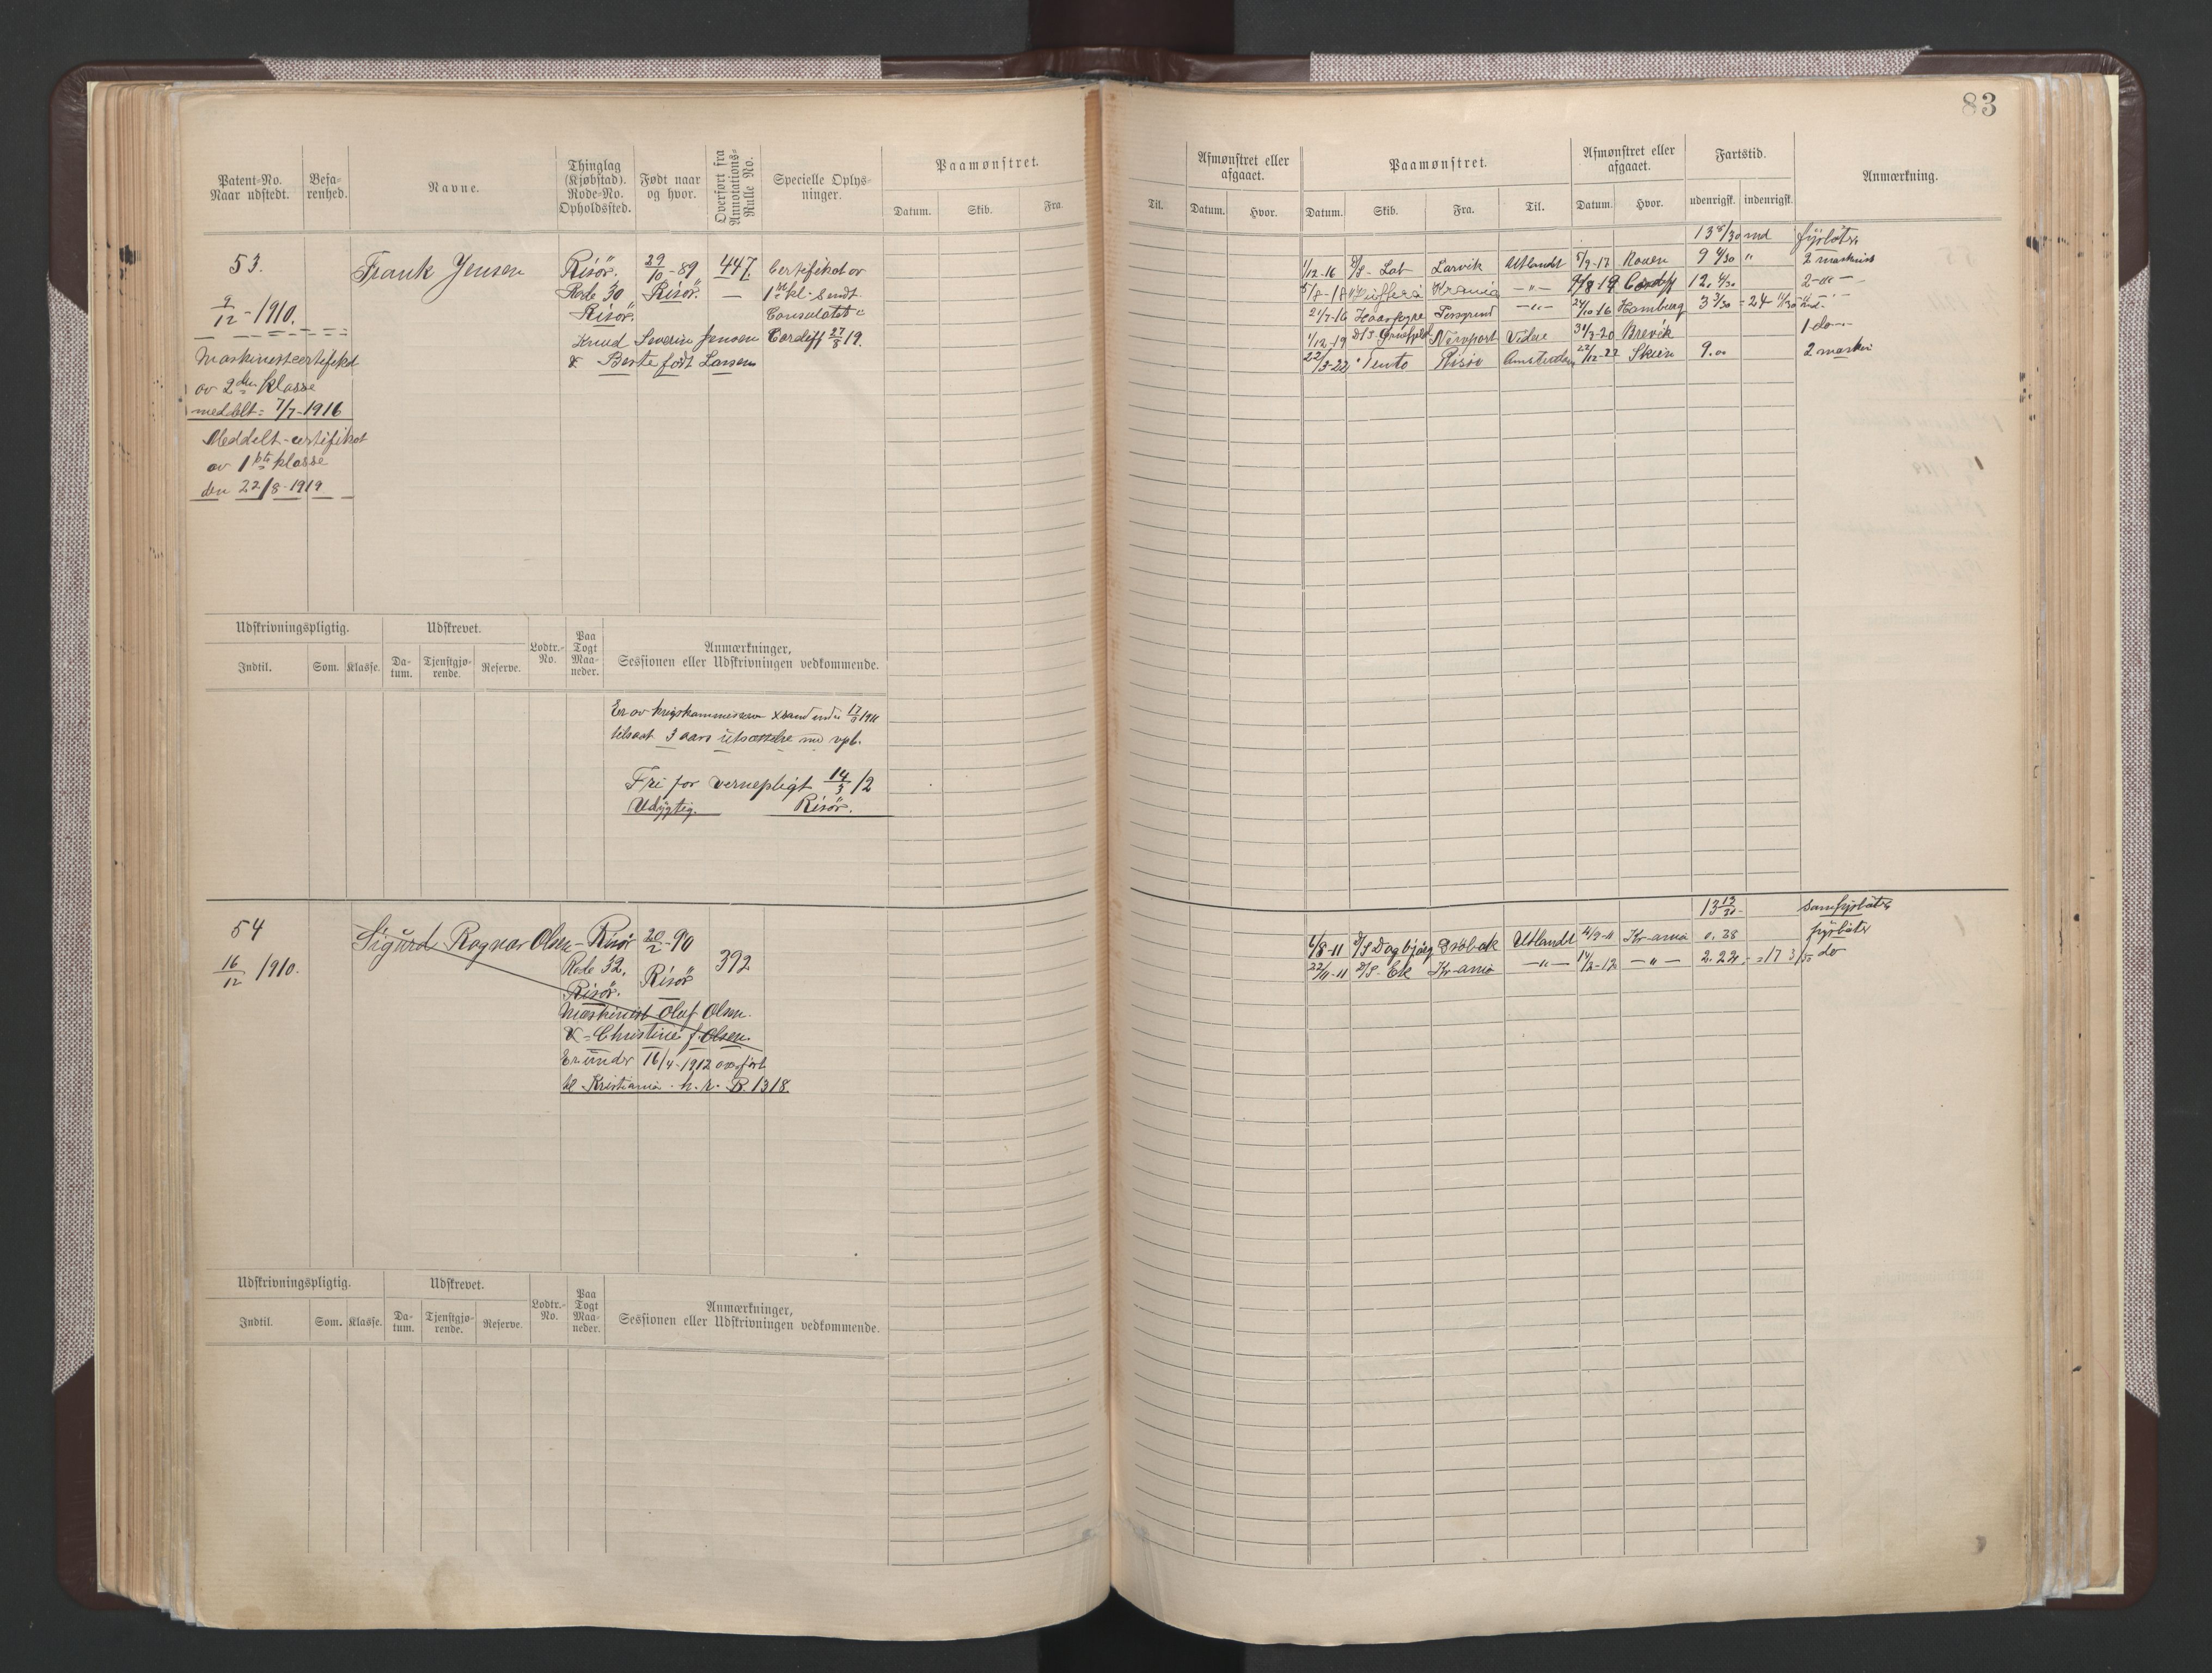 83
Patent-No.
Naar udstedt.
Befa-
renhed.
Navne.
Thinglag
(Kjøbstad).
Rode-No.
Opholdssted.
Født naar
og hvor.
Overført fra
Annotations-
Rulle No.
Specielle Oplys-
ninger.
Paamønstret.
Datum. Skib. Fra.
Til.
Afmønstret eller
afgaaet.
Datum. Hvor.
Paamønstret.
Datum. Skib. Fra. Til.
Afmønstret eller
afgaaet.
Datum. Hvor.
Fartstid.
udenrigsk. indenrigsk.
Anmærkning.
53.
9/12 - 1910.
Maskinistcertifikat
av 2den klasse
meddelt: 7/7-1916
Meddelt certifikat
av 1ste klasse
den 22/8-1919
Frank Jensen
Risör.
Rode 30
Risör.
29/10-89
Risör.
447.
—
Certifikat av
1ste kl. Sendt
Consulatet i
Cardiff 27/8 19.
Knud Severin Jensen
& Berte født Larsen
13 8/30 md fyrbøter
1/12-16 D/S Lab Larvik Utlandt 5/9-17 Rouen 9 4/30 " 2 maskinist
5/8-18 Kr.ania —"— 9/8-19 Cardiff 12. 4/30 2-do —
21/7-16 Haarfagre Porsgrund —"— 24/10-16 Hamburg 3 3/30
1/12-19 D/S Newport 31/3-20 Brevik 1 do—
22/3-22 Tento Risör Amsterdam 22/12-22 Skien 9.00 2 maskin
Udskrivningspligtig.
Indtil. Som. Klasse.
Udskrevet.
Da-
tum.
Tjenstgjø-
rende.
Reserve.
Lodtr.-
No.
Paa
Togt
Maa-
neder.
Anmærkninger,
Sessionen eller Udskrivningen vedkommende.
Er av krigskommissæren Xsand under 17/ 1911
tilsaat 3 aars utsættelse med vpl.
Fri for vernepligt 14/3 12
Udygtig. Risör.
54
16/12 1910.
Sigurd Ragnar Olsen
Risör
Rode 32.
Risör.
20/2-90
Risör
392
Maskinist Olaf Olsen.
& Christine f. Olsen.
Er under 16/4-1912 overført
til Kristiania h.r. B. 1318.
13 12/30 som fyrbøter
6/8-11 D/S Dagbjørg Drøbak Utlandt 4/9-11 Kr-ania 0.28 fyrbøter
22/11-11 D/S Ek Kr-ania —"— 14/2-12 —"— 2.22 = 17 3/30 do
Udskrivningspligtig.
Indtil. Som. Klasse.
Udskrevet.
Da-
tum.
Tjenstgjø-
rende.
Reserve.
Lodtr.-
No.
Paa
Togt
Maa-
neder.
Anmærkninger,
Sessionen eller Udskrivningen vedkommende.